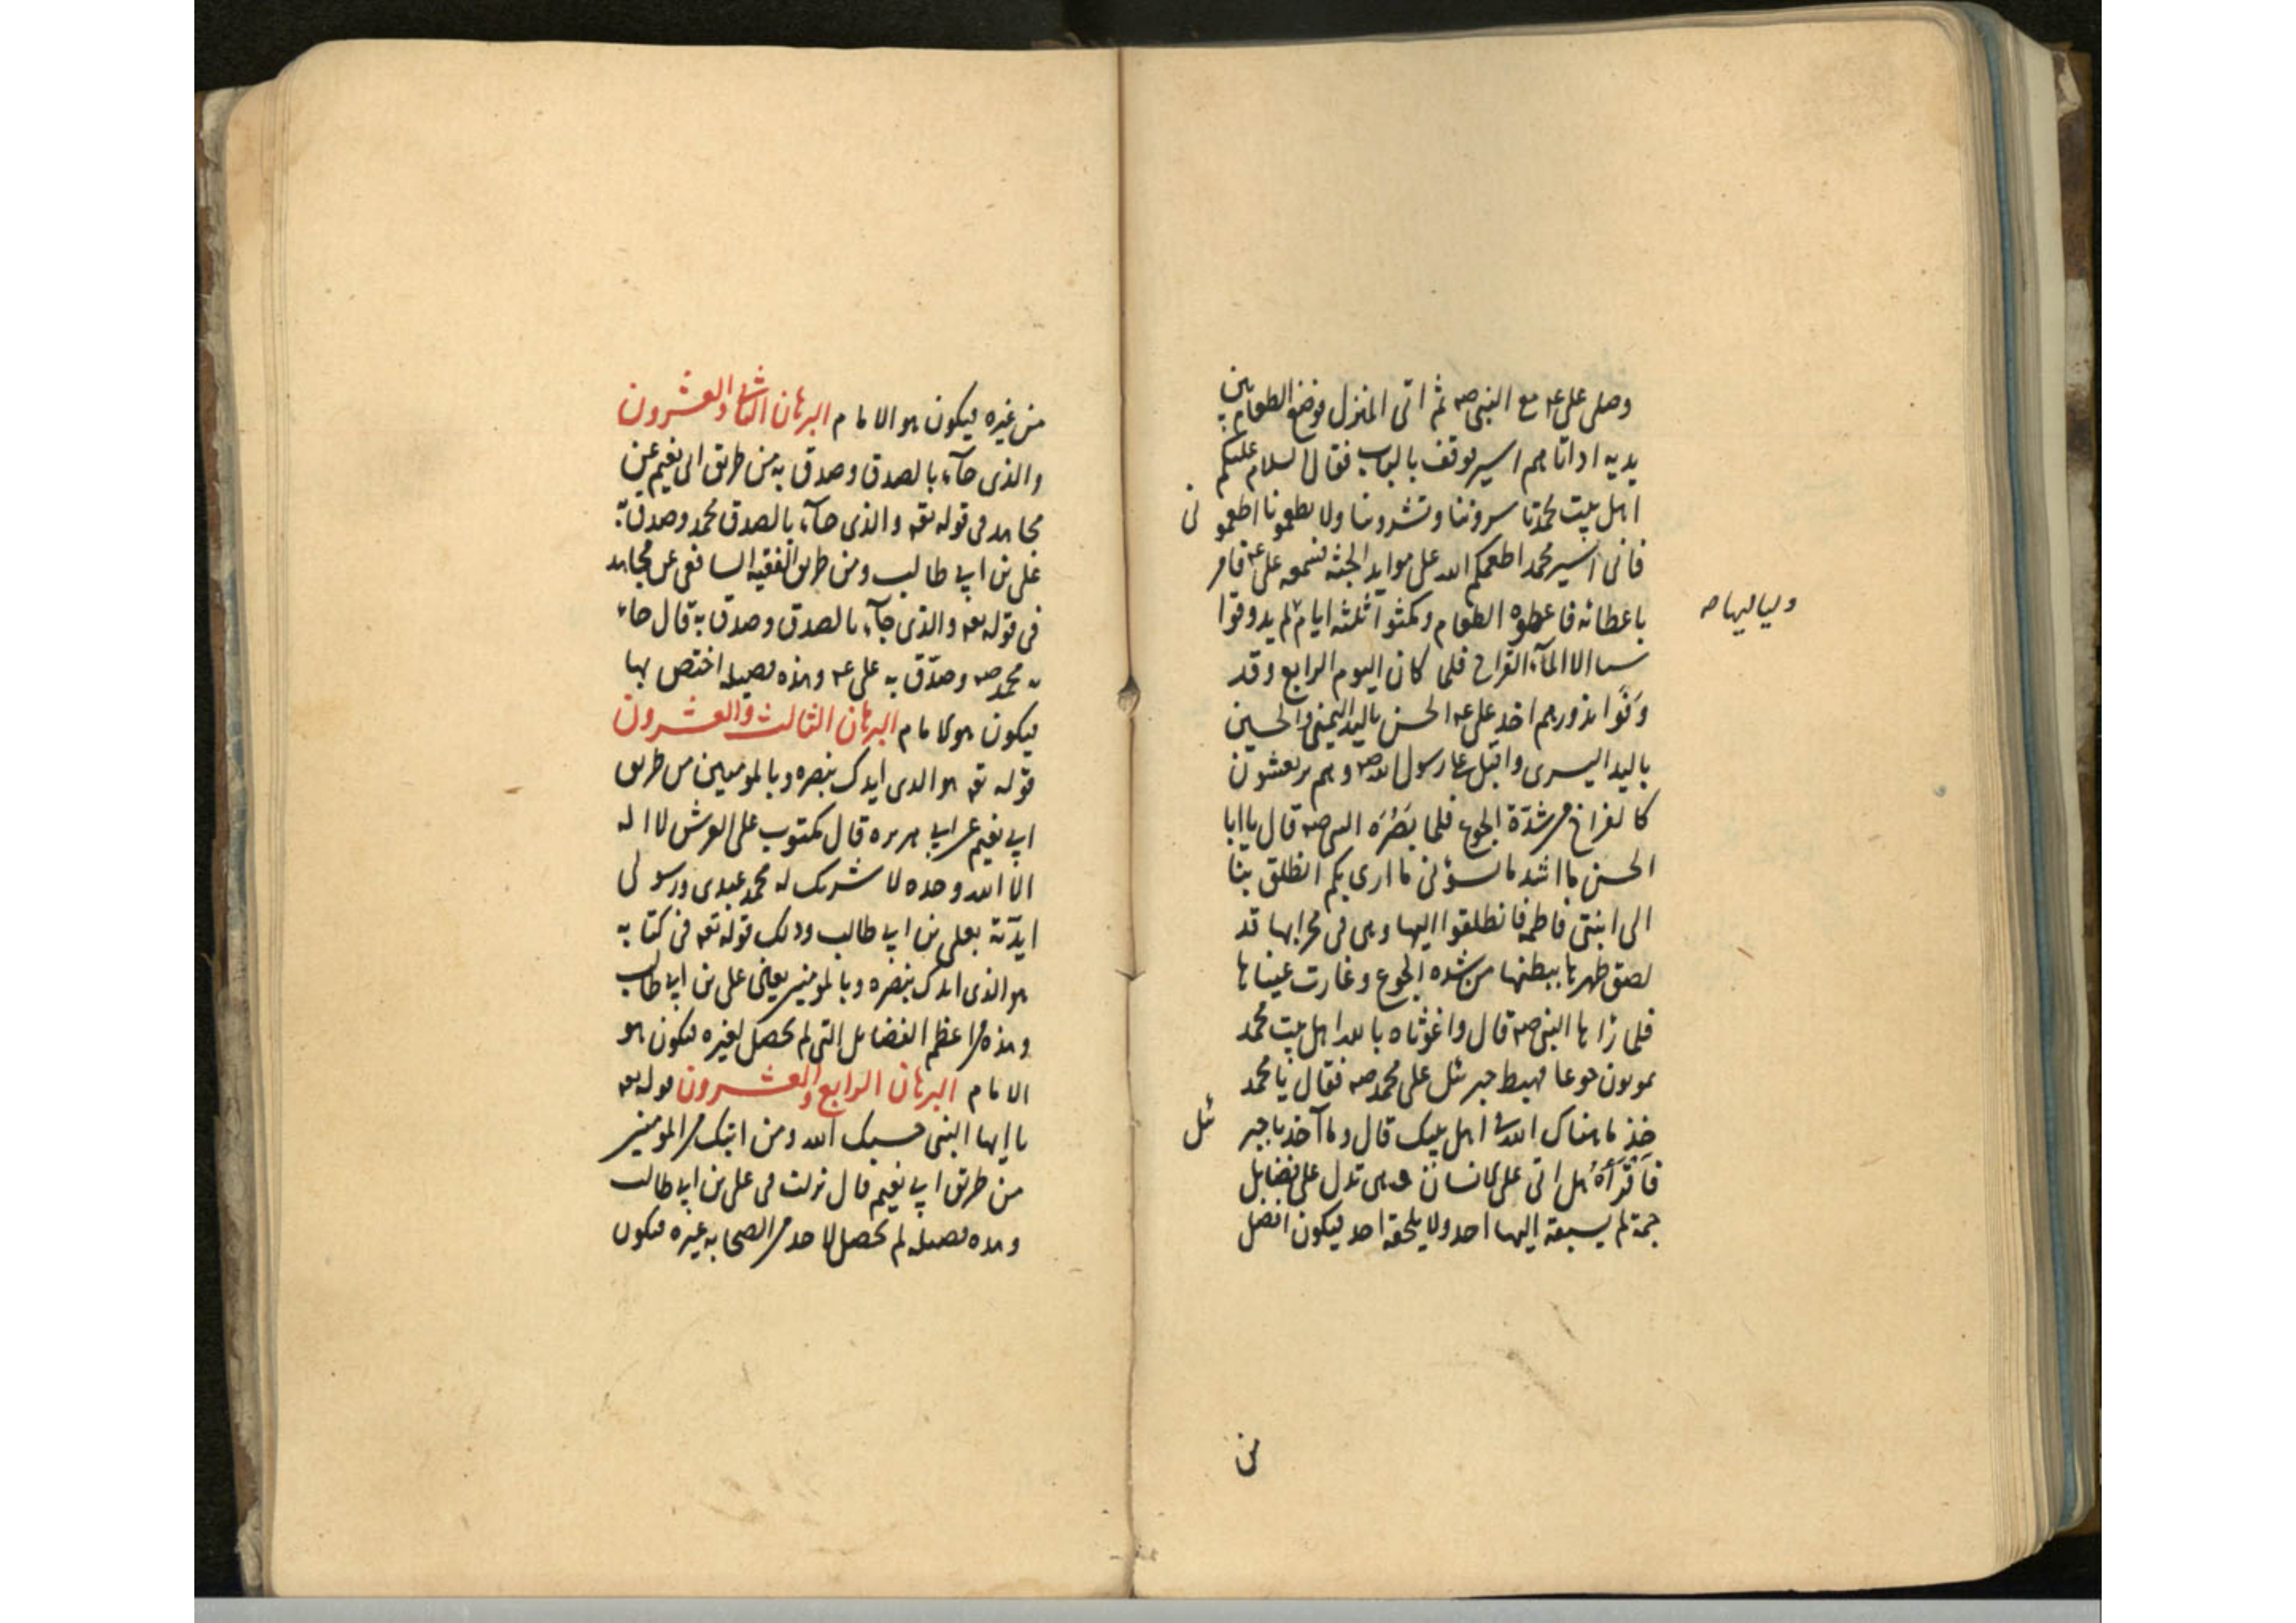 وصلى على عه مع النبى صه ثم اتى المنزل فوضع الطعام بين
يديه اذ اتاهم اسير فوقف بالباب فقال السلام عليكم
اهل بيت محمد تاسروننا وتشدوننا ولا تطعمونا اطعمونى
فانى اسير محمد اطعمكم الله على موايد الجنة فسمعه على عه فامر
باعطائه فاعطوه الطعام ومكثوا ثلثة ايام لم يذوقوا
ولياليها صه
شيا الا المآء القراح فلما كان اليوم الرابع وقد
وفوا نذورهم اخذ على عه الحسن باليد اليمنى والحسين
باليد اليسرى واقبل على رسول الله صه وهم يرتعشون
كالفراخ من شدة الجوع فلما بصره النبى صه قال يا ابا
الحسن ما اشد ما يسؤنى ما ارى بكم انطلق بنا
الى ابنتى فاطمة فانطلقوا اليها وهى فى محرابها قد
لصق ظهرها ببطنها من شدة الجوع وغارت عيناها
فلما رآها النبى صه قال واغوثاه بالله اهل بيت محمد
يموتون جوعا فهبط جبرئيل على محمد صه فقال يا محمد
خذ ما هناك الله فى اهل بيتك قال وما آخذ يا جبرئيل
فاقرأه هل اتى على الانسان وهى تدل على فضايل
جمة لم يسبقه اليها احد ولا يلحقه احد فيكون افضل
من
من غيره فيكون هو الامام البرهان الثانى والعشرون
والذى جآء بالصدق وصدق به من طريق ابى نعيم عن
مجاهد فى قوله تعه والذى جآء بالصدق محمد وصدق به
على بن ابى طالب ومن طريق الفقيه الشافعى عن مجاهد
فى قوله تعه والذى جآء بالصدق وصدق به قال جاء
به محمد صه وصدّق به على عه وهذه فضيلة اختص بها
فيكون هو الامام البرهان الثالث والعشرون
قوله تعه هو الذى ايدك بنصره وبالمومنين من طريق
ابى نعيم عن ابى هريره قال مكتوب على العرش لا اله
الا الله وحده لا شريك له محمد عبدى ورسولى
ايدته بعلى بن ابى طالب وذلك قوله تعه فى كتابه
هو الذى ايدك بنصره وبالمومنين يعنى على بن ابى طالب
وهذه من اعظم الفضايل التى لم تحصل لغيره فيكون هو
الامام البرهان الرابع والعشرون قوله تعه
يا ايها النبى حسبك الله ومن اتبعك من المومنين
من طريق ابى نعيم قال نزلت فى على بن ابى طالب
وهذه فضيلة لم تحصل لاحد من الصحابه غيره فيكون